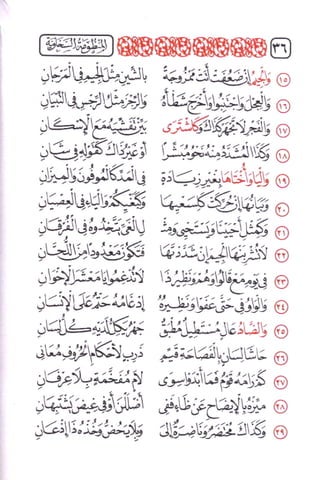 ٣٦ المنظومة السخاوية
١٥ وَالجِيمُ إِنْ ضَعُفَتْ أَتَتْ مَمْزُوجَةً بِالشِّينِ مِثْلَ الجِيمِ فِي المَرْجَانِ
١٦ وَالعِجْلَ وَاجْتَنِبُوا وَأَخْرَجَ شَطْأَهُ وَالرِّجْزَ مِثْلَ الرِّجْسِ فِي التِّبْيَانِ
١٧ وَالفَجْرِ لَا تَجْهَرْ كَذَاكَ وَكَاشْتَرَى بَيِّنْ تَفَشِّيَهُ مَعَ الإِسْكَانِ
١٨ وَكَذَا المُشَدَّدُ مِنْهُ نَحْوَ مُبَشِّرًا أَوْ غَيْرُ ذَاكَ كَقَوْلِهِ فِي شَانِ
١٩ وَاليَا وَأُخْتَاهَا بِغَيْرِ زِيَادَةٍ فِي المَدِّ كَالمُوفُونَ وَالمِيزَانِ
٢٠ وَبَيَانُهَا إِنْ حُرِّكَتْ كَلِسَعْيِهَا وَكَبَغْيِكُمْ وَاليَاءِ فِي العِصْيَانِ
٢١ وَكَمِثْلِ أَحْيَيْنَا وَيَسْتَحْيِي وَمِثْـ ـلِ الغَيِّ يَتَّخِذُوهُ فِي الفُرْقَانِ
٢٢ لَا تُشْرِبَنْهَا الجِيمَ إِنْ شَدَّدْتَهَا فَتَكُونَ مَعْدُودًا مِنَ اللُّحَّانِ
٢٣ فِي يَوْمِ مَعْ قَالُوا وَهُمْ وَنَظِيرُ ذَا لَا تُدْغِمُوا يَا مَعْشَرَ الإِخْوَانِ
٢٤ وَالوَاوُ فِي حَتَّى عَفَوْا وَنَظِيرِهِ إِدْغَامُهُ حَتْمٌ عَلَى الإِنْسَانِ
٢٥ وَالضَّادُ عَالٍ مُسْتَطِيلٌ مُطْبَقٌ جَهْرٌ يَكِلُّ لَدَيْهِ كُلُّ لِسَانِ
٢٦ حَاشَا لِسَانٍ بِالفَصَاحَةِ قَيِّمٍ ذَرِبٍ لِأَحْكَامِ الحُرُوفِ مُعَانِي
٢٧ كَمْ رَامَهُ قَوْمٌ فَمَا أَبْدَوْا سِوَى لَامٍ مُفَخَّمَةٍ بِلَا عِرْفَانِ
٢٨ مَيِّزْهُ بِالإِيضَاحِ عَنْ ظَاءٍ فَفِي أَضْلَلْنَ أَوْ فِي غِيضَ يَشْتَبِهَانِ
٢٩ وَكَذَاكَ مُحْتَضَرٌ وَنَاضِرَةٌ إِلَى وَبِلَا يَحُضُّ وَخُذْهُ ذَا إِذْعَانِ